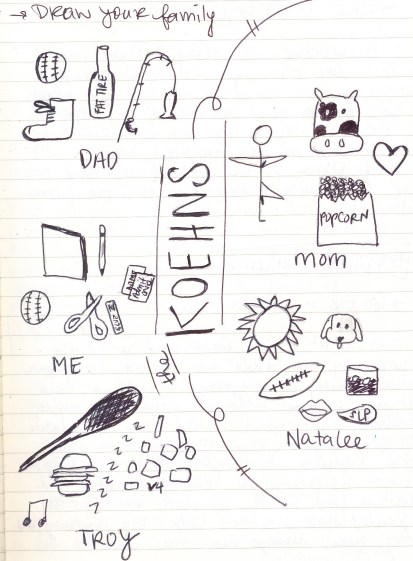 → DRAW your family
FAT TIRE
DAD
POPCORN
mom
the KOEHNS
ADMIT
ME
SLP
Natalee
z z z z z z z
V4
TROY